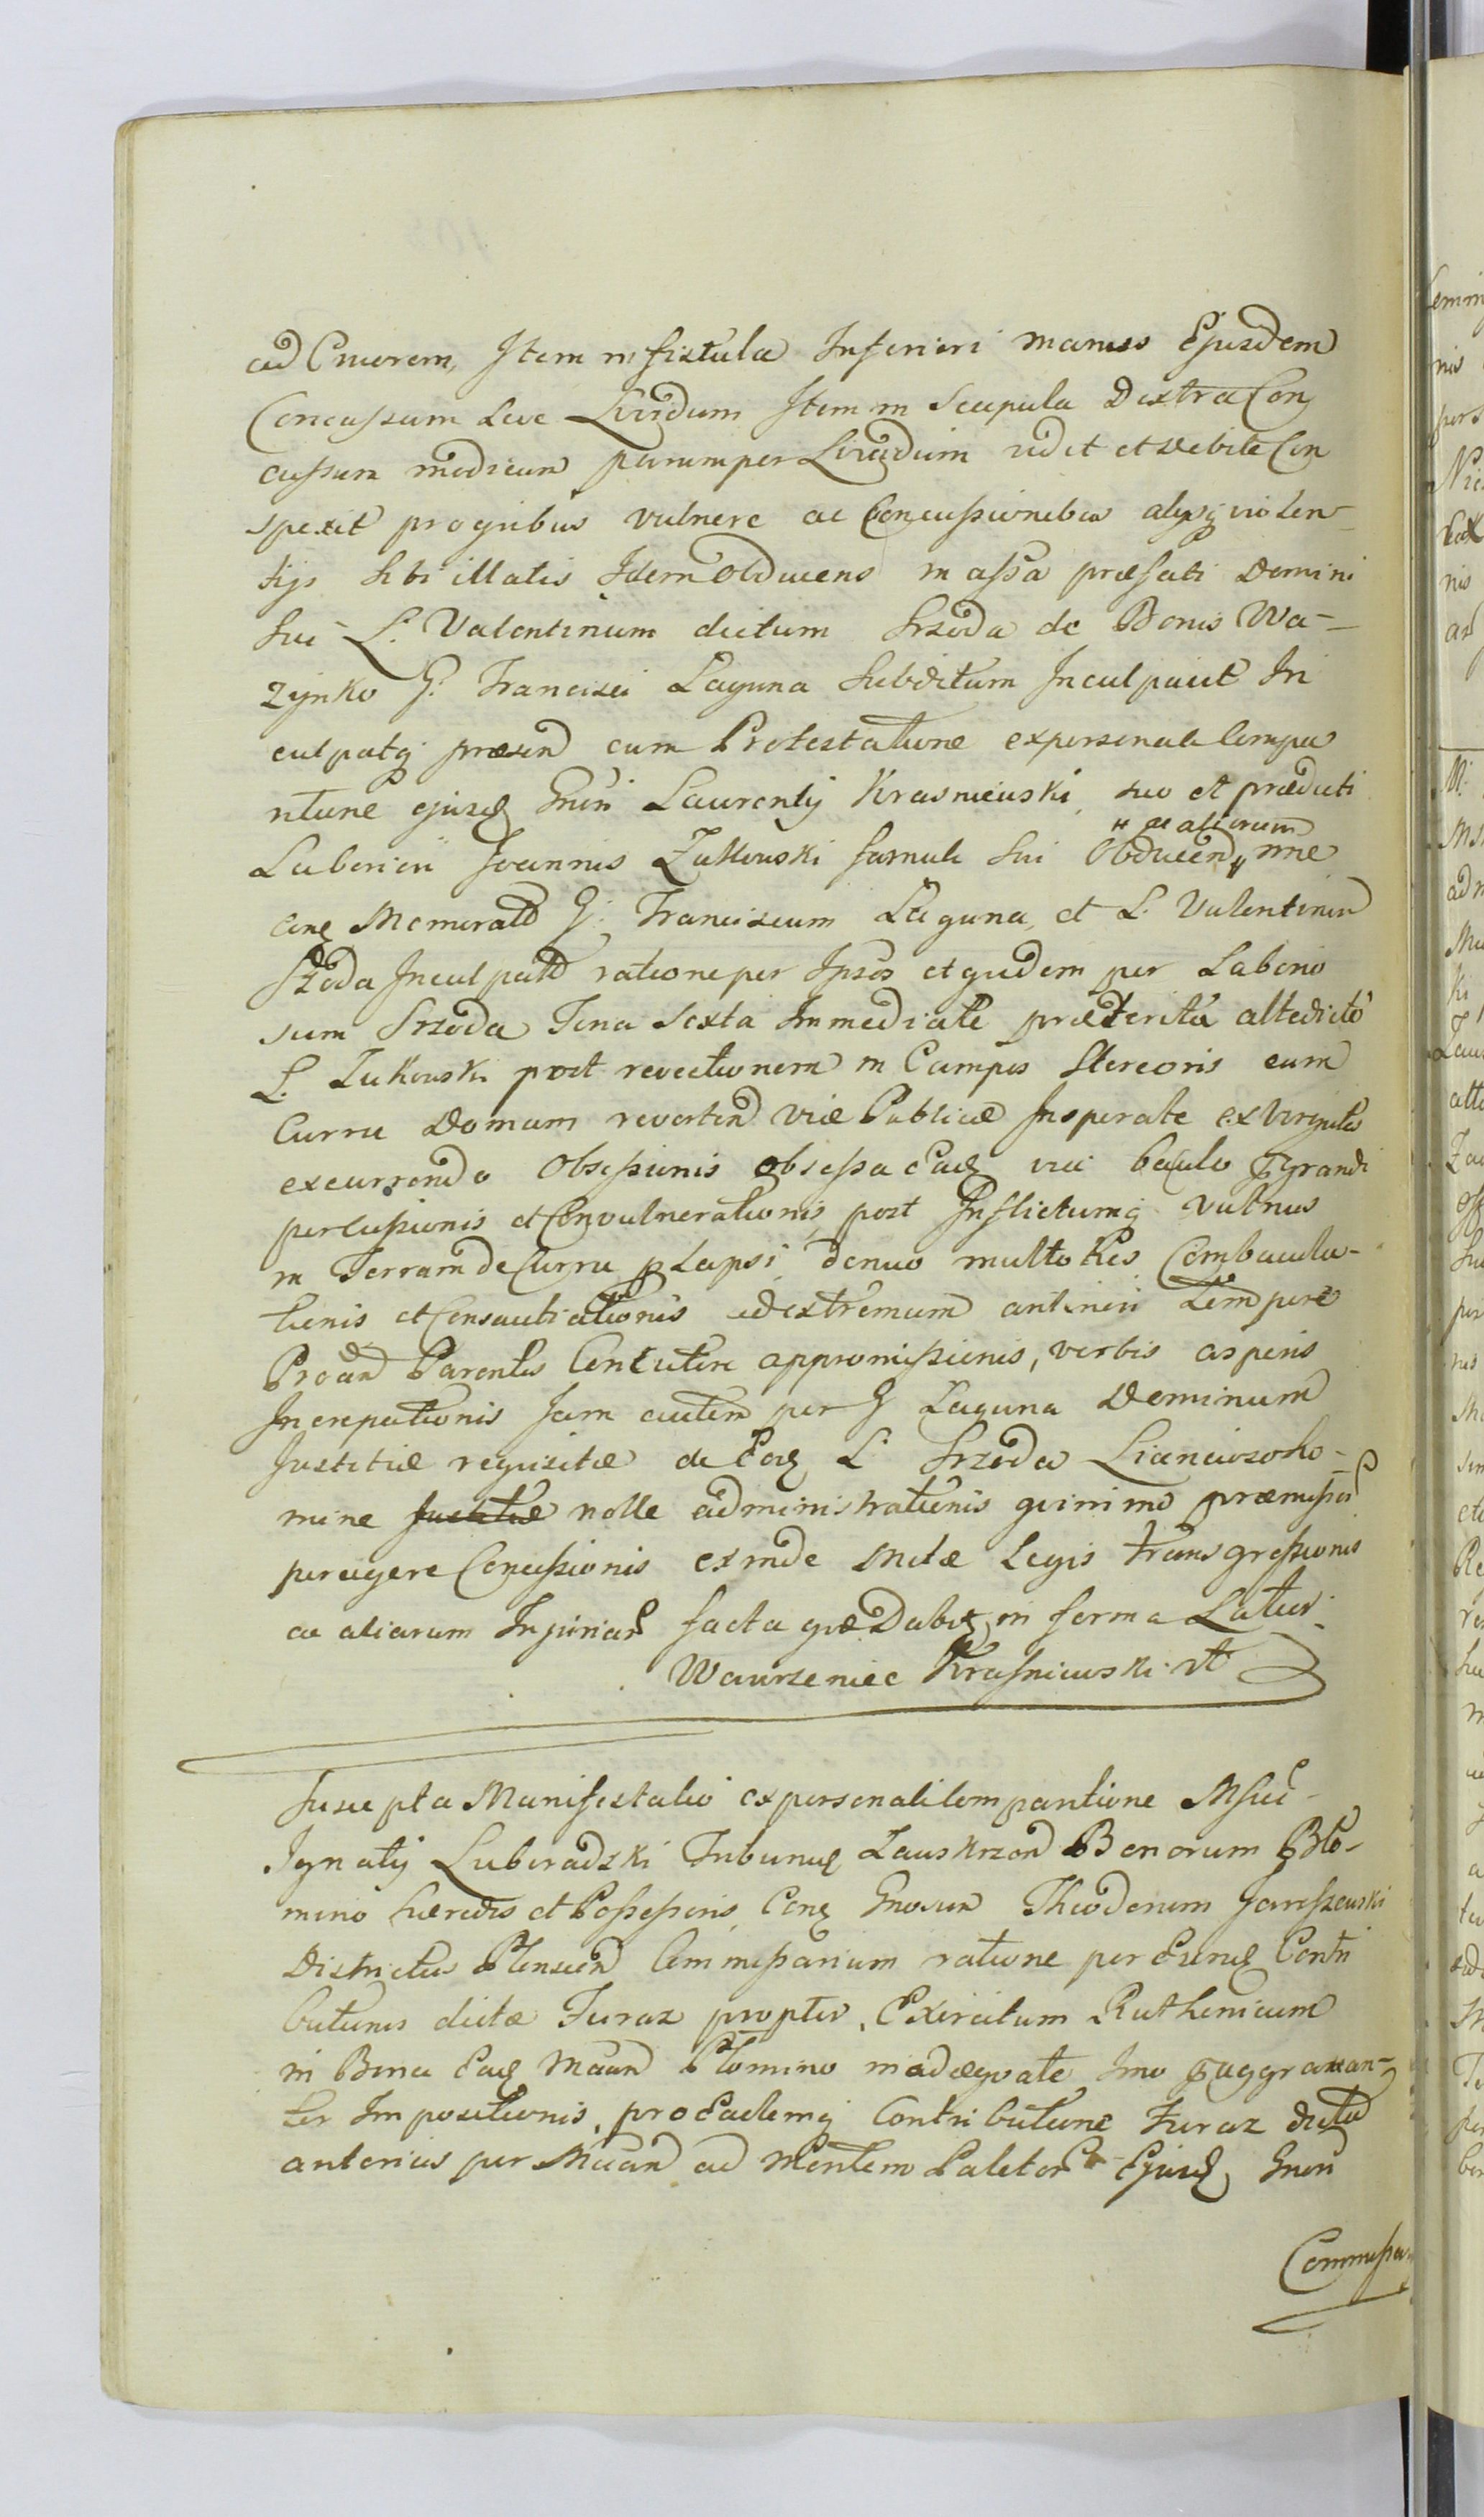 ad Cruorem, Item in fistula Inferiori manus Ejusdem
Concussum Leve Lividum Item in Scapula Dextra Con
cussum modicum parumper Lividum vidit et debite Con
spexit pro quibus vulnere ac Concussionibus alysq violen-
tijs sibi illatis Idem Obducens in assa præfati Domini
sui L. Valentinum dictum Srzoda de Bonis Wa-
zynko G. Francisci Laguna Subditum Inculpavit In
culpatq præsen cum Protestatione ex personali Compa
ritione ejusd Gnri Laurentij Krasniewski, suo et prædicti
Laboriosi Joannis Zukowski famuli sui Obducen nne
" ac aliorum
Cong Memorat G. Franciscum Laguna, et L. Valentinum
Srzoda Inculpatt ratione per Ipsos et quidem per Laborio
sum Srzoda Feria Sexta Immediate præterita altedicto
L. Zukowski post revectionem in Campos Stercoris cum
Curru Domum revertend viæ Publicæ Insperate ex Virgultis
excurrendo Obsessionis obsessa Eaq via baculo grandi
percussionis et Convulnerationis, post Inflictumq Vulnus
in Terram de Curru plapsi, denuo multoties Combacula-
tionis et Consauciationis ad extremum antiniori tempore
Parentis appromissionis, verbis asperis
Increpationis Jam autem per G Laguna Dominum
Justitiæ requisitæ de Eoq L. Srzoda ho-
mine Justitiæ nolle administrationis quinimo præmissa
peragere Concussionis exinde Legis transgressionis
ac aliarum Injuriar facta quæ Dabit in forma Latiori
Wawrzeniec Krasniewski

Suscepta Manifestatio ex personali Comparitione Msci
Ignatij Luboradzki Tribuni Zauskrzon Bonorum Pło-
mino hæredis et Possessoris Cong Gnosum Theodorum Jaroszewski
Districtus Plonscen Commissarium ratione per Eund Contri
butionis dictæ Furaz propter Exercitum Ruthenicum
in Bona Eaq Mani Płomino inadæquate Imo aggravan-
ter Impositionis, pro Eademq Contributione Furaz dicta
anterius per Mani ad Mentem Paletor Ejusd Gnosi
Commissa